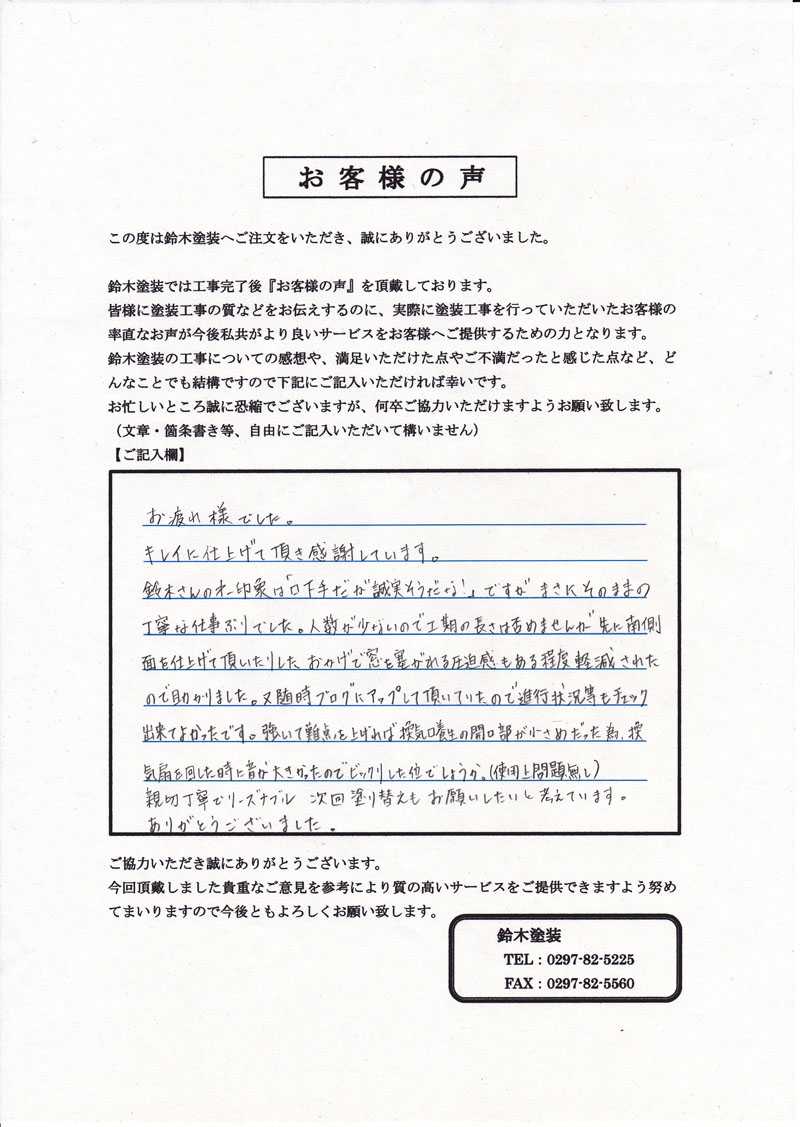 お客様の声
この度は鈴木塗装へご注文をいただき、誠にありがとうございました。
鈴木塗装では工事完了後『お客様の声』を頂戴しております。
皆様に塗装工事の質などをお伝えするのに、実際に塗装工事を行っていただいたお客様の
率直なお声が今後私共がより良いサービスをお客様へご提供するための力となります。
鈴木塗装の工事についての感想や、満足いただけた点やご不満だったと感じた点など、ど
んなことでも結構ですので下記にご記入いただければ幸いです。
お忙しいところ誠に恐縮でございますが、何卒ご協力いただけますようお願い致します。
（文章・箇条書き等、自由にご記入いただいて構いません）
【ご記入欄】
お疲れ様でした。
キレイに仕上げて頂き感謝しています。
鈴木さんの才一印象は「口下手だが誠実そうだな!」ですが まさにそのままの
丁寧な仕事ぶりでした。人数が少ないので工期の長さは否めませんが 先に南側
面を仕上げて頂いたりした おかげで窓を塞がれる圧迫感もある程度軽減された
ので助かりました。又随時ブログにアップして頂いていたので進行状況等もチェック
出来てよかったです。強いて難点を上げれば換気口養生の開口部が小さめだった為、換
気扇を回した時に音が大きかったのでビックリした位でしょうか。(使用上問題無し)
親切丁寧でリーズナブル 次回塗り替えも お願いしたいと考えています。
ありがとうございました。
ご協力いただき誠にありがとうございます。
今回頂戴しました貴重なご意見を参考により質の高いサービスをご提供できますよう努め
てまいりますので今後ともよろしくお願い致します。
鈴木塗装
TEL：0297-82-5225
FAX：0297-82-5560